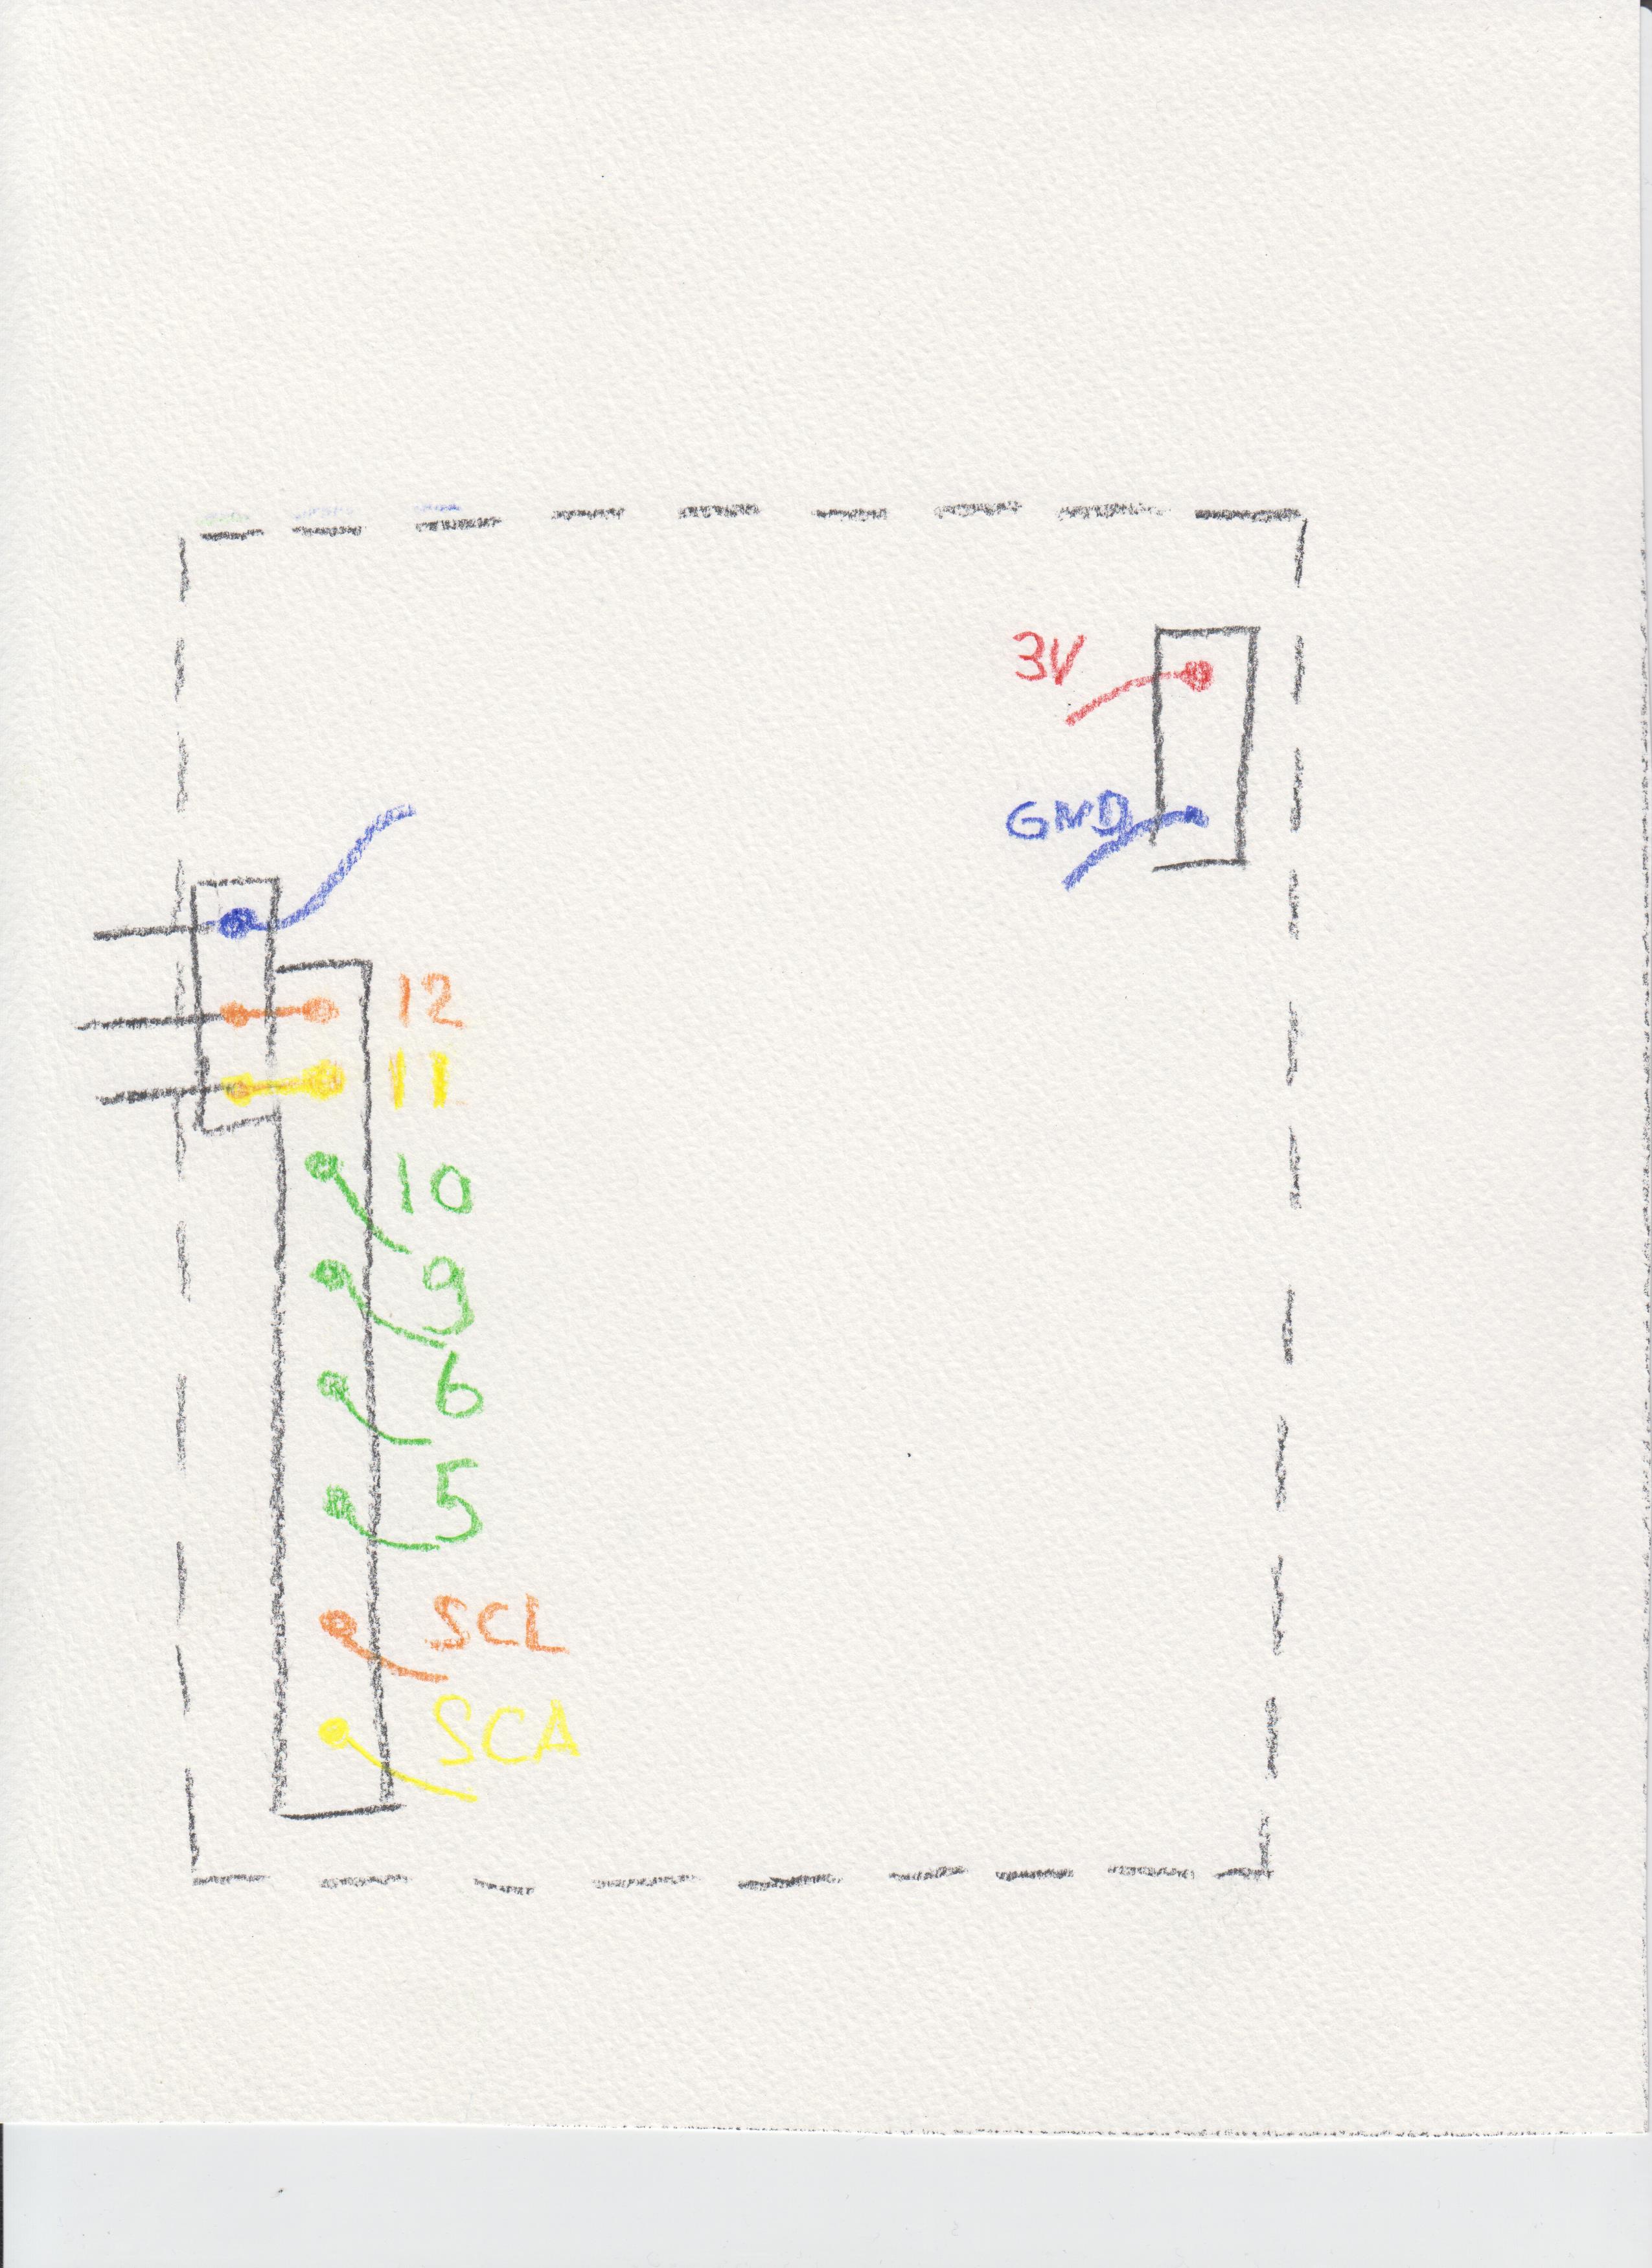 3V
GND
12
11
10
9
6
5
SCL
SCA